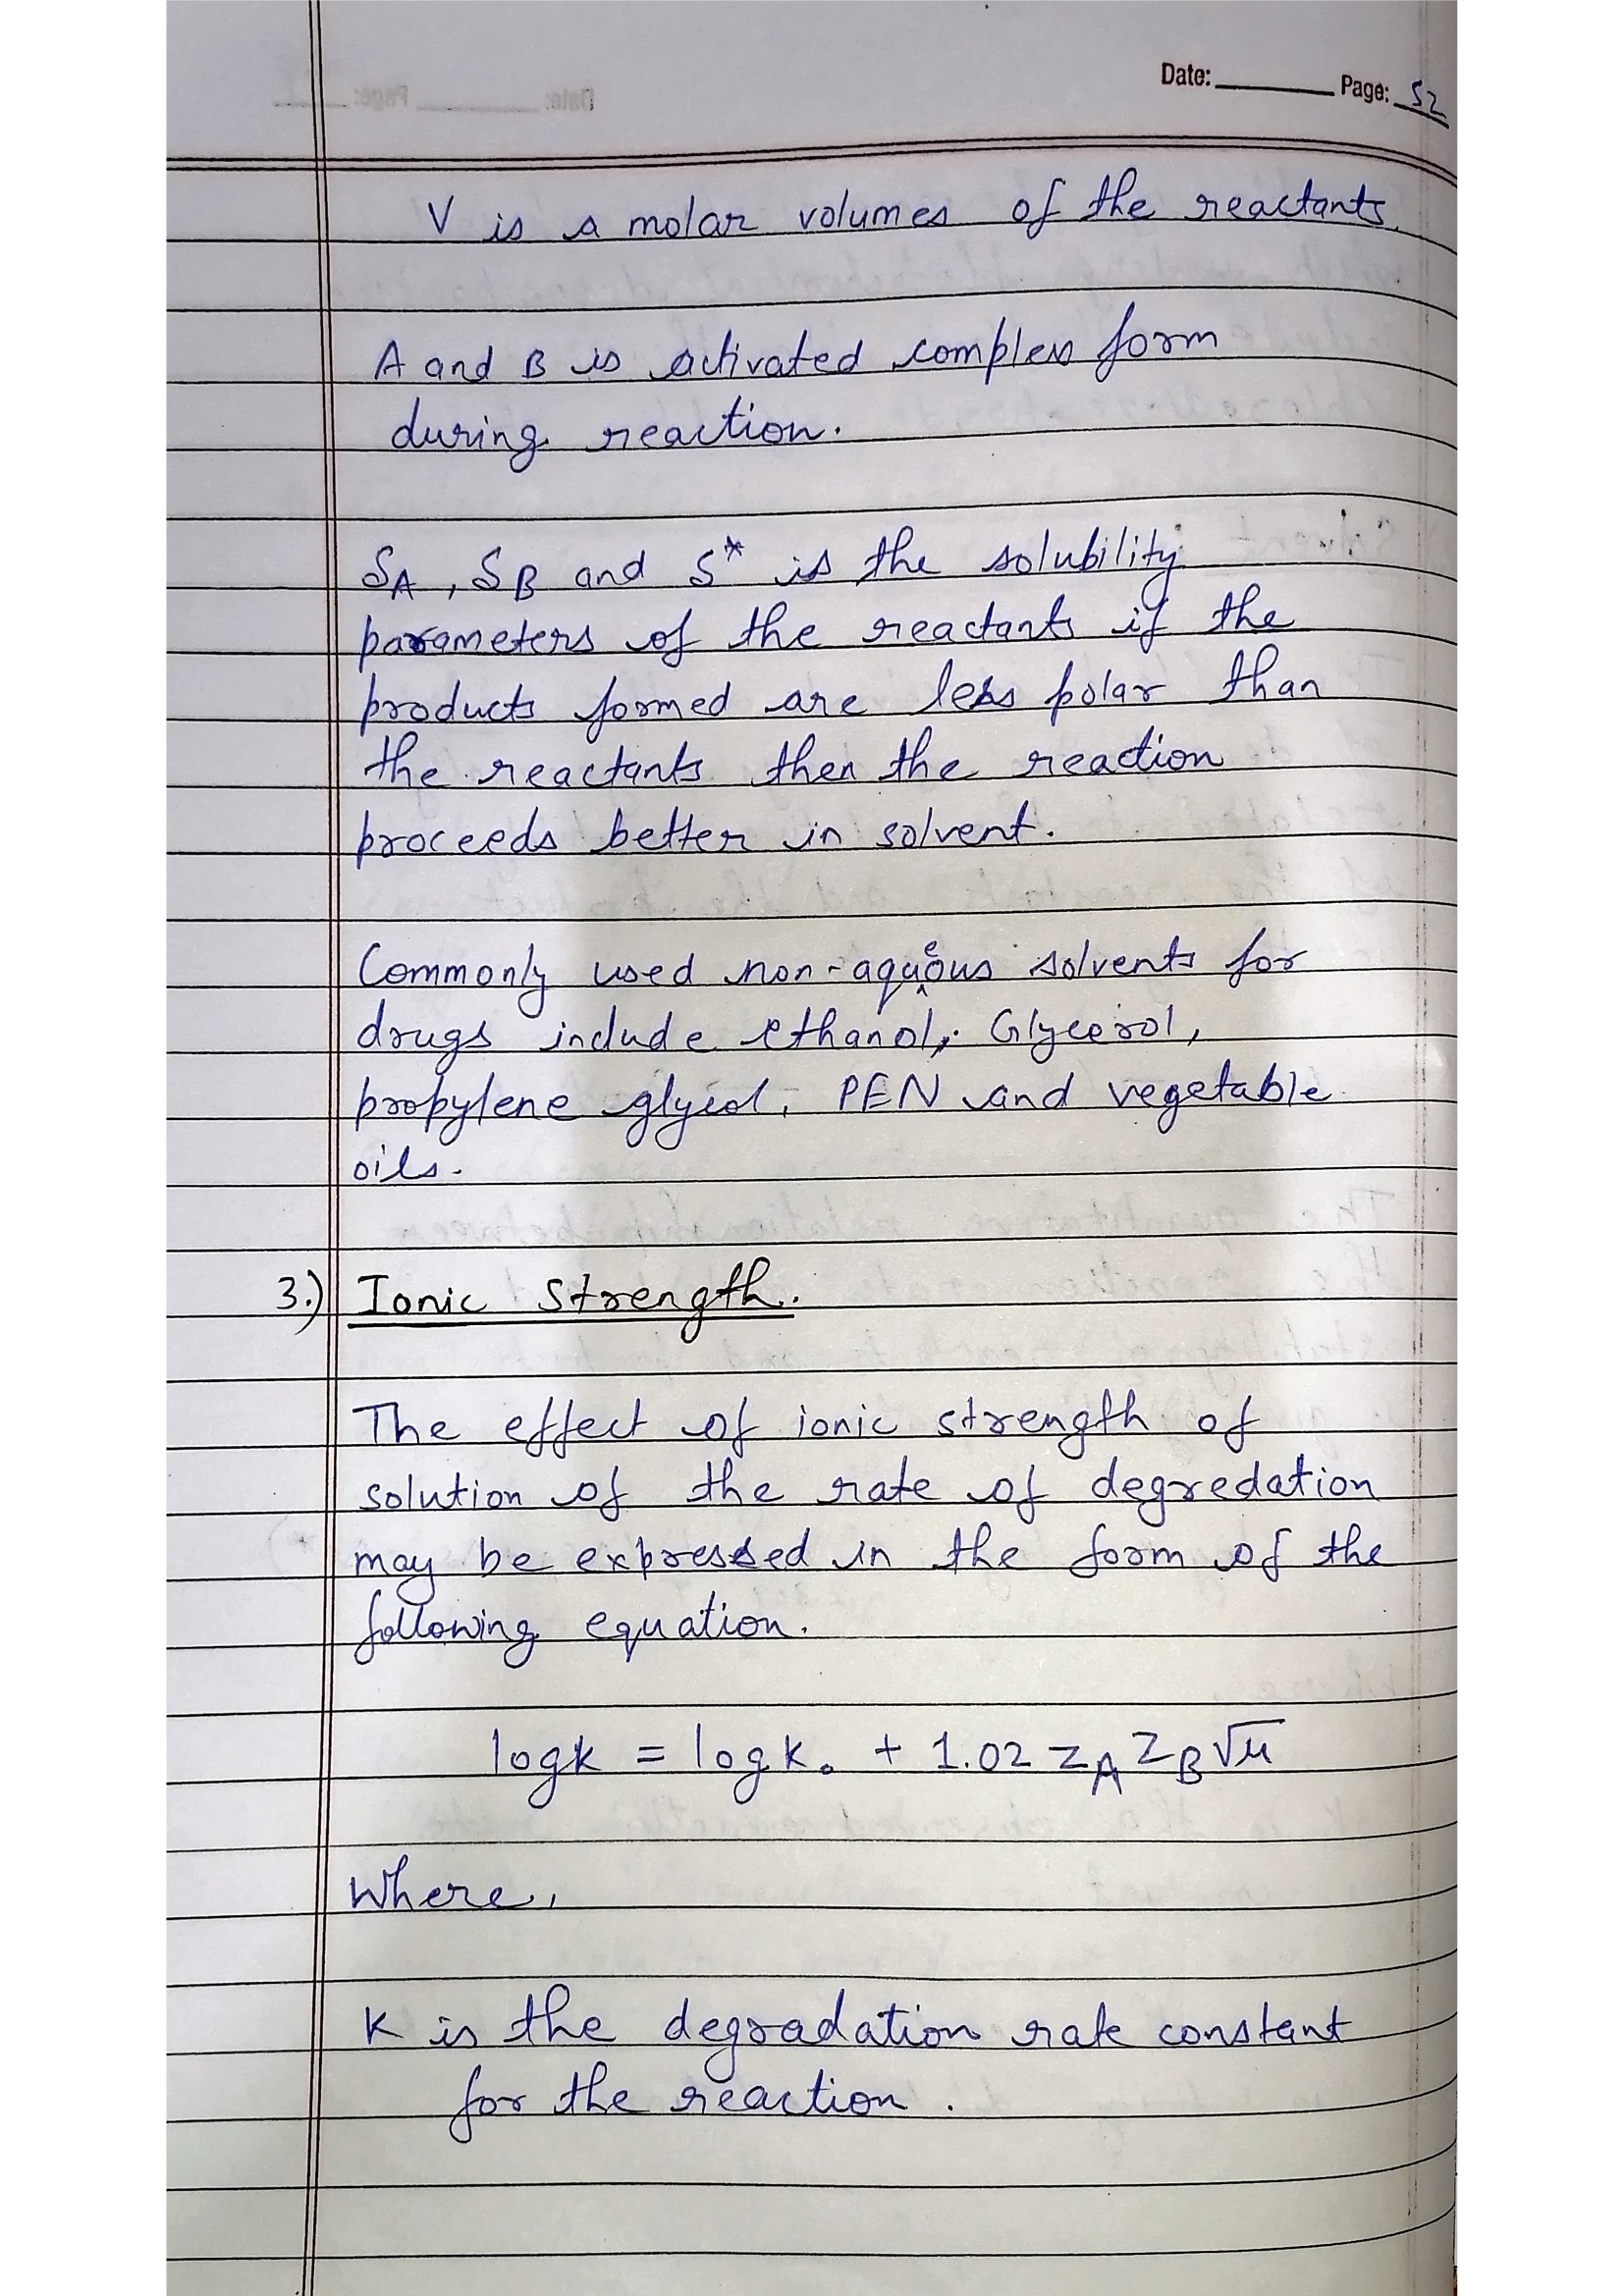 Date: Page: 52
V is a molar volumes of the reactants.
A and B is activated complex form
during reaction.
SA, SB and S* is the solubility
parameters of the reactants if the
products formed are less polar than
the reactants then the reaction
proceeds better in solvent.
Commonly used non-aqueous solvents for
drugs include ethanol, Glycerol,
propylene glycol, PEN and vegetable
oils.
3.) Ionic Strength.
The effect of ionic strength of
solution of the rate of degredation
may be expressed in the form of the
following equation.
logk = logk₀ + 1.02 zA ZB √μ
Where,
K is the degradation rate constant
for the reaction.